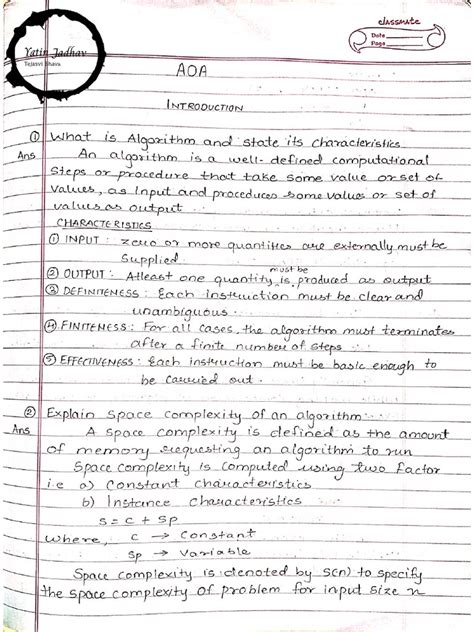 classmate
Date
Page
Yatin Jadhav
Tejasvi Bhava
AOA
INTRODUCTION
① What is Algorithm and state its characteristics
Ans An algorithm is a well-defined computational
steps or procedure that take some value or set of
values, as Input and proceduces some values or set of
values as output.
CHARACTERISTICS
① INPUT : zero or more quantities are externally must be
supplied.
② OUTPUT : Atleast one quantity is must be produced as output
③ DEFINITENESS : Each instruction must be clear and
unambiguous.
④ FINITENESS : For all cases, the algorithm must terminates
after a finite number of steps.
⑤ EFFECTIVENESS : Each instruction must be basic enough to
be carried out.
② Explain space complexity of an algorithm.
Ans A space complexity is defined as the amount
of memory requesting an algorithm to run
Space complexity is computed using two factor
i.e a) Constant characteristics
b) Instance characteristics
s = c + sp
where, c → Constant
sp → Variable
Space complexity is denoted by S(n) to specify
the space complexity of problem for input size n